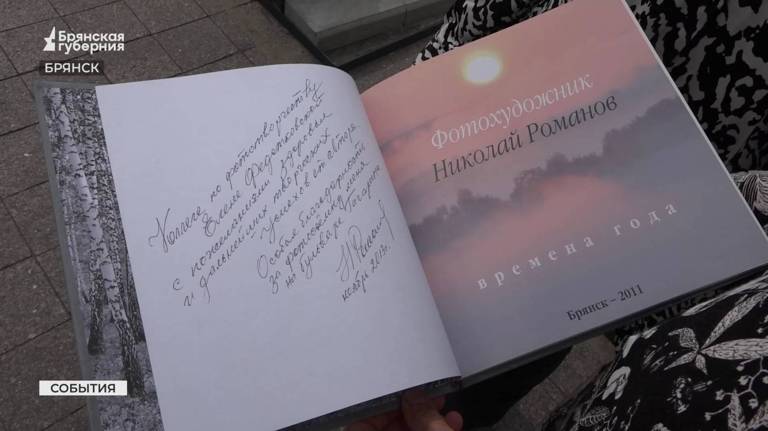 Брянская
Губерния
БРЯНСК
Коллеге по фототворчеству
Елене Федотковской
с пожеланиями здоровья
и дальнейших творческих
успехов от автора.
Особая благодарность
за фотосъёмку меня
на бульваре Гагарина
ноябрь 2013г.
Фотохудожник
Николай Романов
времена года
Брянск – 2011
СОБЫТИЯ